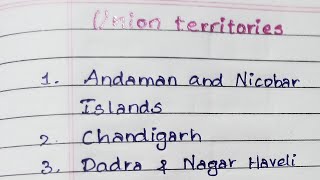 Union territories
1. Andaman and Nicobar
Islands
2. Chandigarh
3. Dadra & Nagar Haveli